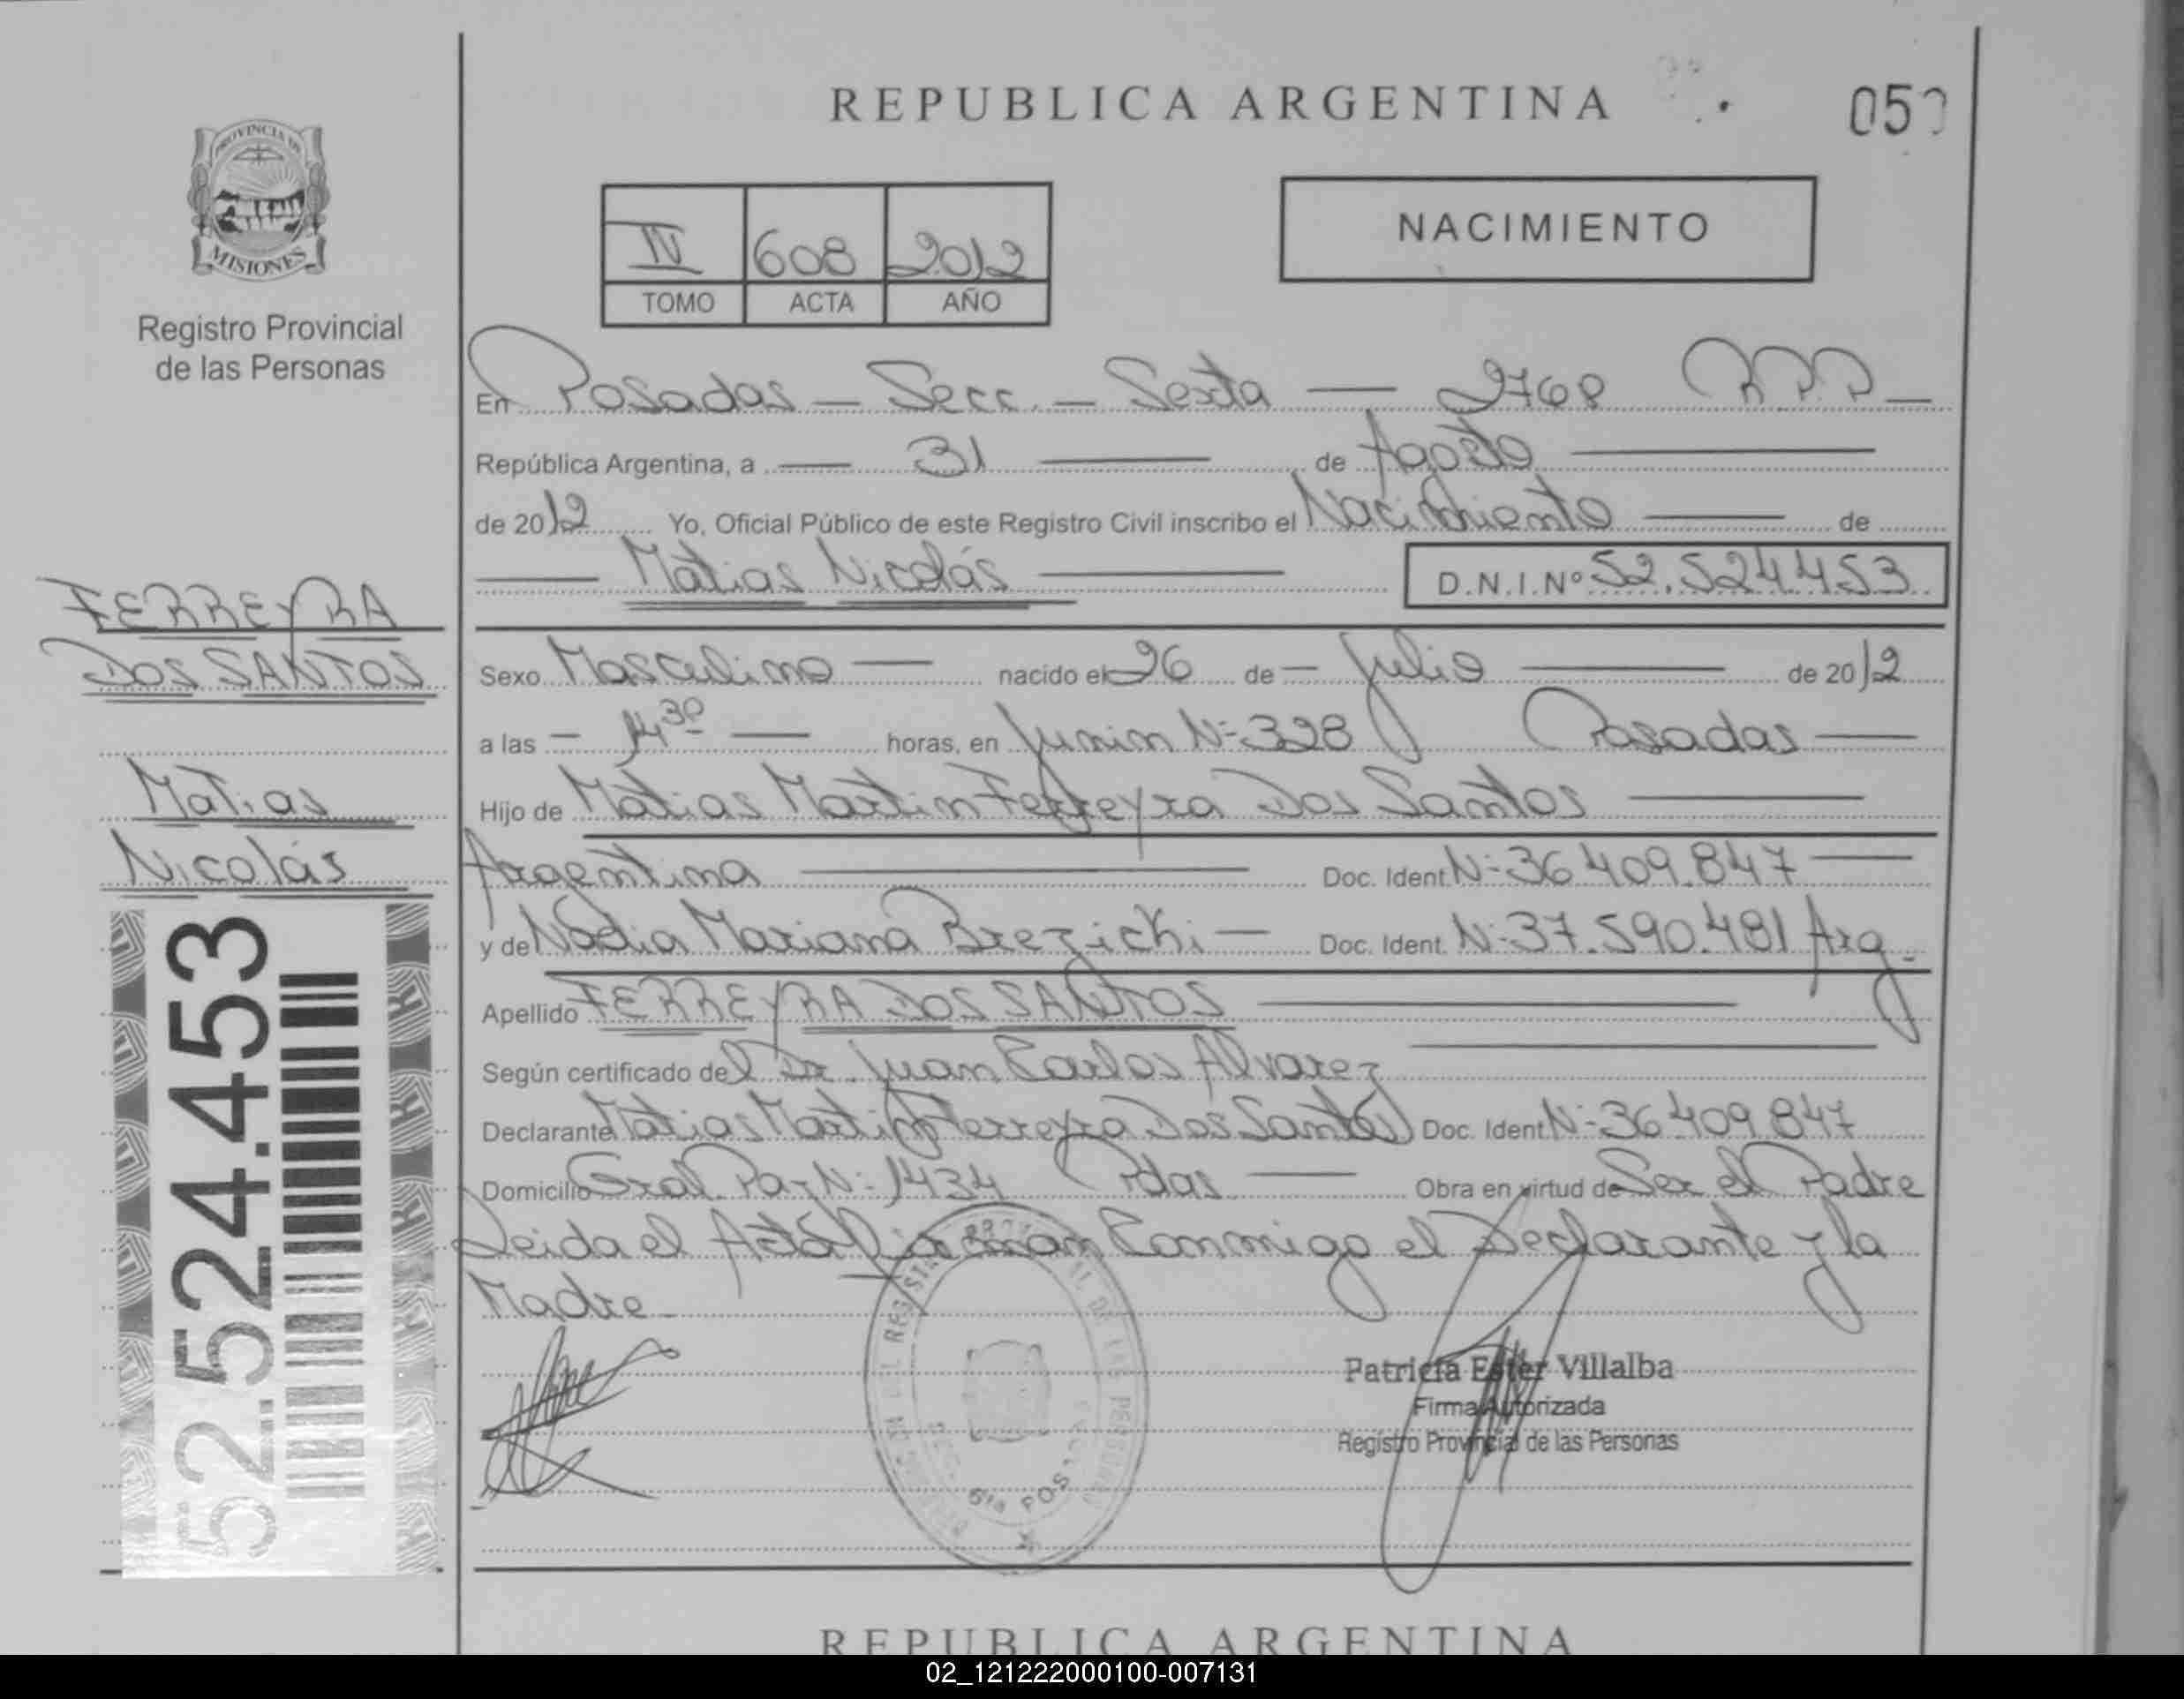 REPUBLICA ARGENTINA
05
PROVINCIA DE
MISIONES
Registro Provincial
de las Personas
IV 608 2012
TOMO ACTA AÑO
NACIMIENTO
En Posadas — Secc. — Sexta — 2768 RPP —
República Argentina, a — 31 — de Agosto —
de 2012 Yo, Oficial Público de este Registro Civil inscribo el Nacimiento — de
— Matias Nicolás — D.N.I.Nº 52.524.453
FERREYRA
DOS SANTOS
Matias
Nicolás
52.524.453
Sexo Masculino — nacido el 26 de — Julio — de 2012
a las — 14 30 — horas, en Junin Nº 328 Posadas —
Hijo de Matias Martin Ferreyra Dos Santos —
Argentina — Doc. Ident. Nº 36.409.847 —
y de Nadia Mariana Brezicki — Doc. Ident. Nº 37.590.481 Arg.
Apellido FERREYRA DOS SANTOS —
Según certificado del Dr. Juan Carlos Alvarez
Declarante Matias Martin Ferreyra Dos Santos Doc. Ident. Nº 36.409.847
Domicilio Gral. Paz Nº 1434 Pdas — Obra en virtud de Ser el Padre
Leida el Acta Firman Conmigo el Declarante y la
Madre
Patricia Ester Villalba
Firma Autorizada
Registro Provincial de las Personas
6ta POS
REPUBLICA ARGENTINA
02_121222000100-007131